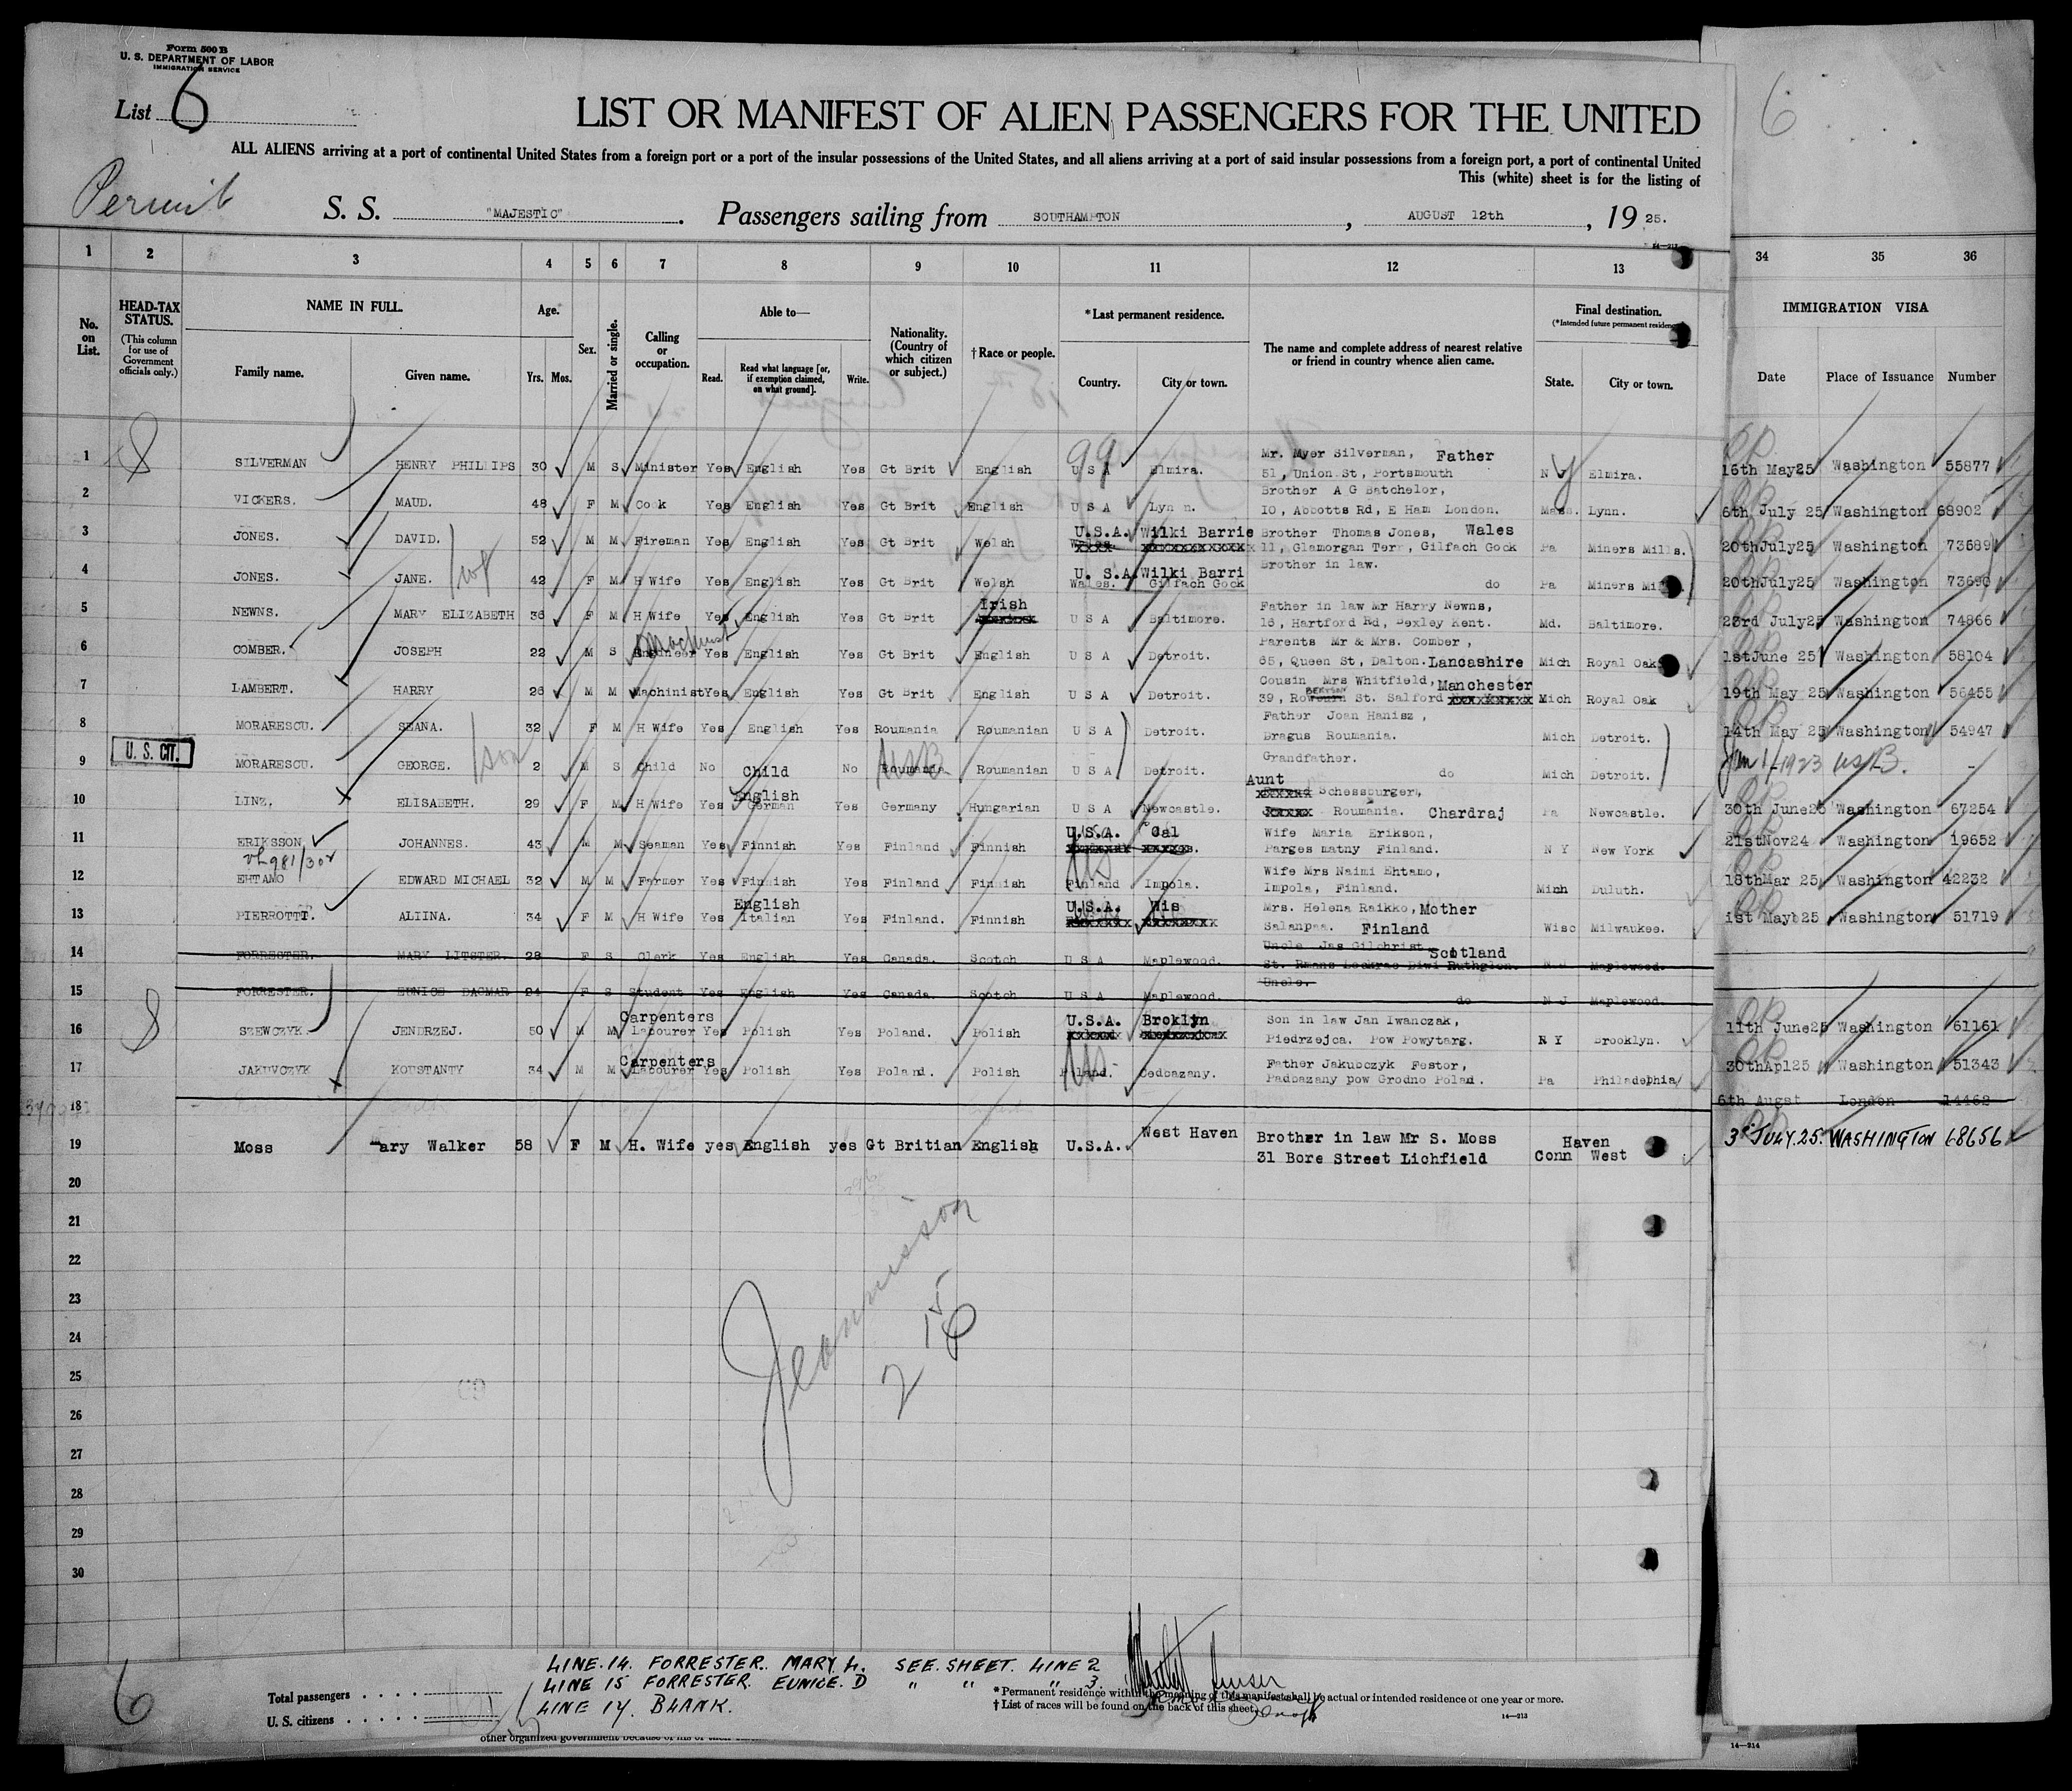 Form 500 B
U. S. DEPARTMENT OF LABOR
IMMIGRATION SERVICE
List 6
6
LIST OR MANIFEST OF ALIEN PASSENGERS FOR THE UNITED
ALL ALIENS arriving at a port of continental United States from a foreign port or a port of the insular possessions of the United States, and all aliens arriving at a port of said insular possessions from a foreign port, a port of continental United
This (white) sheet is for the listing of
Permit
S. S. "MAJESTIC". Passengers sailing from SOUTHAMPTON, AUGUST 12th, 19 25.
1 2 3 4 5 6 7 8 9 10 11 12 13 34 35 36
No. on List. HEAD-TAX STATUS. (This column for use of Government officials only.) NAME IN FULL. Family name. Given name. Age. Yrs. Mos. Sex. Married or single. Calling or occupation. Able to— Read. Read what language [or, if exemption claimed, on what ground]. Write. Nationality. (Country of which citizen or subject.) †Race or people. *Last permanent residence. Country. City or town. The name and complete address of nearest relative or friend in country whence alien came. Final destination. (*Intended future permanent residence) State. City or town. IMMIGRATION VISA Date Place of Issuance Number
1 SILVERMAN HENRY PHILLIPS 30 M S Minister Yes English Yes Gt Brit English 99 U S A Elmira. Mr. Myer Silverman, Father 51, Union St, Portsmouth N Y Elmira. 16th May25 Washington 55877
2 VICKERS. MAUD. 48 F M Cook Yes English Yes Gt Brit English U S A Lyn n. Brother A G Batchelor, 10, Abbotts Rd, E Ham London. Mass. Lynn. 6th July 25 Washington 68902
3 JONES. DAVID. 52 M M Fireman Yes English Yes Gt Brit Welsh U.S.A. Wilki Barrie Brother Thomas Jones, Wales 11, Glamorgan Terr, Gilfach Gock Pa Miners Mills. 20thJuly25 Washington 73689
4 JONES. JANE. wf 42 F M H Wife Yes English Yes Gt Brit Welsh U. S.A. Wilki Barri Wales. Gilfach Gock Brother in law. do Pa Miners Mills. 20thJuly25 Washington 73690
5 NEWNS. MARY ELIZABETH 36 F M H Wife Yes English Yes Gt Brit Irish U S A Baltimore. Father in law Mr Harry Newns, 16, Hartford Rd, Bexley Kent. Md. Baltimore. 23rd July25 Washington 74866
6 COMBER. JOSEPH 22 M S Engineer Yes English Yes Gt Brit English U S A Detroit. Parents Mr & Mrs. Comber, 65, Queen St, Dalton. Lancashire Mich Royal Oak 1stJune 25 Washington 58104
7 LAMBERT. HARRY 26 M M Machinist Yes English Yes Gt Brit English U S A Detroit. Cousin Mrs Whitfield, Manchester 39, St. Salford Mich Royal Oak 19th May 25 Washington 56455
8 MORARESCU. SEANA. 32 F M H Wife Yes English Yes Roumania Roumanian U S A Detroit. Father Joan Hanisz, Dragus Roumania. Mich Detroit. 14th May 25 Washington 54947
U. S. CIT.
9 MORARESCU. GEORGE. son 2 M S Child No Child No Roumania USB Roumanian U S A Detroit. Grandfather. do Mich Detroit. Jan 1/1923 USB. -
10 LINZ. ELISABETH. 29 F M H Wife Yes English German Yes Germany Hungarian U S A Newcastle. Aunt Schessburger, Roumania. Chardraj Pa Newcastle. 30th June25 Washington 67254
11 ERIKSSON JOHANNES. 43 M M Seaman Yes Finnish Yes Finland Finnish U.S.A. Cal Wife Maria Erikson, Parges matny Finland. N Y New York 21stNov24 Washington 19652
12 EHTAMO EDWARD MICHAEL 32 M M Farmer Yes Finnish Yes Finland Finnish Finland US Impola. Wife Mrs Naimi Ehtamo, Impola, Finland. Minn Duluth. 18thMar 25 Washington 42232
13 PIERROTTI. ALIINA. 34 F M H Wife Yes English Italian Yes Finland. Finnish U.S.A. Wis Mrs. Helena Raikko, Mother Salanpaa. Finland Wisc Milwaukee. 1st May 25 Washington 51719
14 FORRESTER. MARY LITSTER. 28 F S Clerk Yes English Yes Canada. Scotch U S A Maplewood. Uncle Jas Gilchrist Scotland N J Maplewood.
15 FORRESTER. EUNICE DAGMAR 24 F S Student Yes English Yes Canada. Scotch U S A Maplewood. Uncle. do N J Maplewood.
16 SZEWCZYK JENDRZEJ. 50 M M Carpenters Labourer Yes Polish Yes Poland. Polish U.S.A. Broklyn Son in law Jan Iwanczak, Piedrzejca. Pow Powytarg. N Y Brooklyn. 11th June25 Washington 61161
17 JAKUVCZYK KONSTANTY 34 M M Carpenters Labourer Yes Polish Yes Poland. Polish Poland. US Cedbazany. Father Jakubczyk Festor, Padbazany pow Grodno Polad. Pa Philadephia 30thApl25 Washington 51343
18 6th Augst London 14462
19 Moss Mary Walker 58 F M H. Wife yes English yes Gt Britian English U.S.A. West Haven Brother in law Mr S. Moss 31 Bore Street Lichfield Haven Conn West 3rd JULY.25. WASHINGTON 68656
20
21
22
23
24
25
26
27
28
29
30
Jeannisson
LINE.14. FORRESTER. MARY L. SEE. SHEET. LINE 2
LINE 15 FORRESTER. EUNICE. D " " " 3.
LINE 17. BLANK.
6
Total passengers . . . .
U. S. citizens . . . . .
*Permanent residence within the meaning of this manifest shall be actual or intended residence of one year or more.
†List of races will be found on the back of this sheet.
14—213
14—214